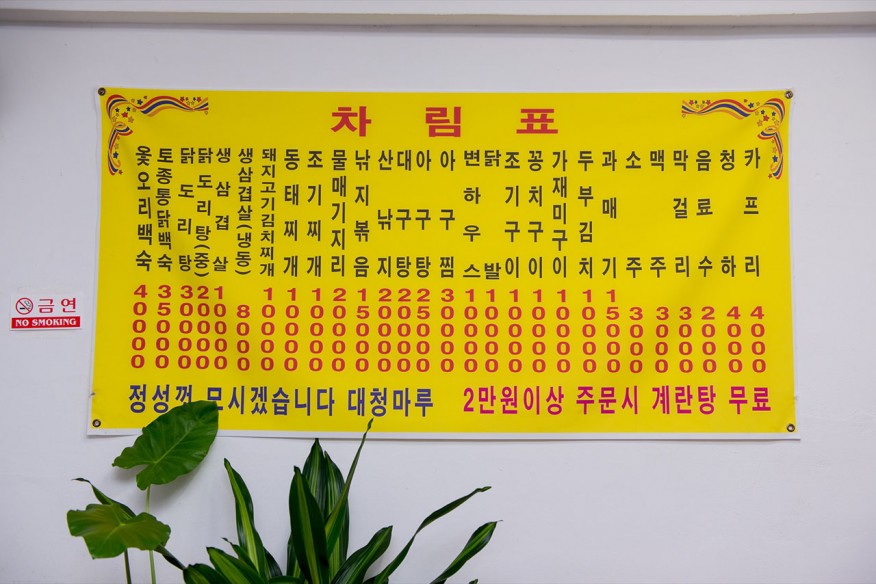 차림표
옻오리백숙 40000
토종통닭백숙 35000
닭도리탕 30000
닭도리탕(중) 20000
생삼겹살 10000
생삼겹살(냉동) 8000
돼지고기김치찌개 10000
동태찌개 10000
조기찌개 10000
물매기지리 20000
낚지볶음 15000
산낚지 20000
대구탕 20000
아구탕 25000
아구찜 30000
변하우스 10000
닭발 10000
조기구이 10000
꽁치구이 10000
가재미구이 10000
두부김치 10000
과매기 15000
소주 3000
맥주 3000
막걸리 3000
음료수 2000
청하 4000
카프리 4000
정성껏 모시겠습니다 대청마루 2만원이상 주문시 계란탕 무료
금연
NO SMOKING